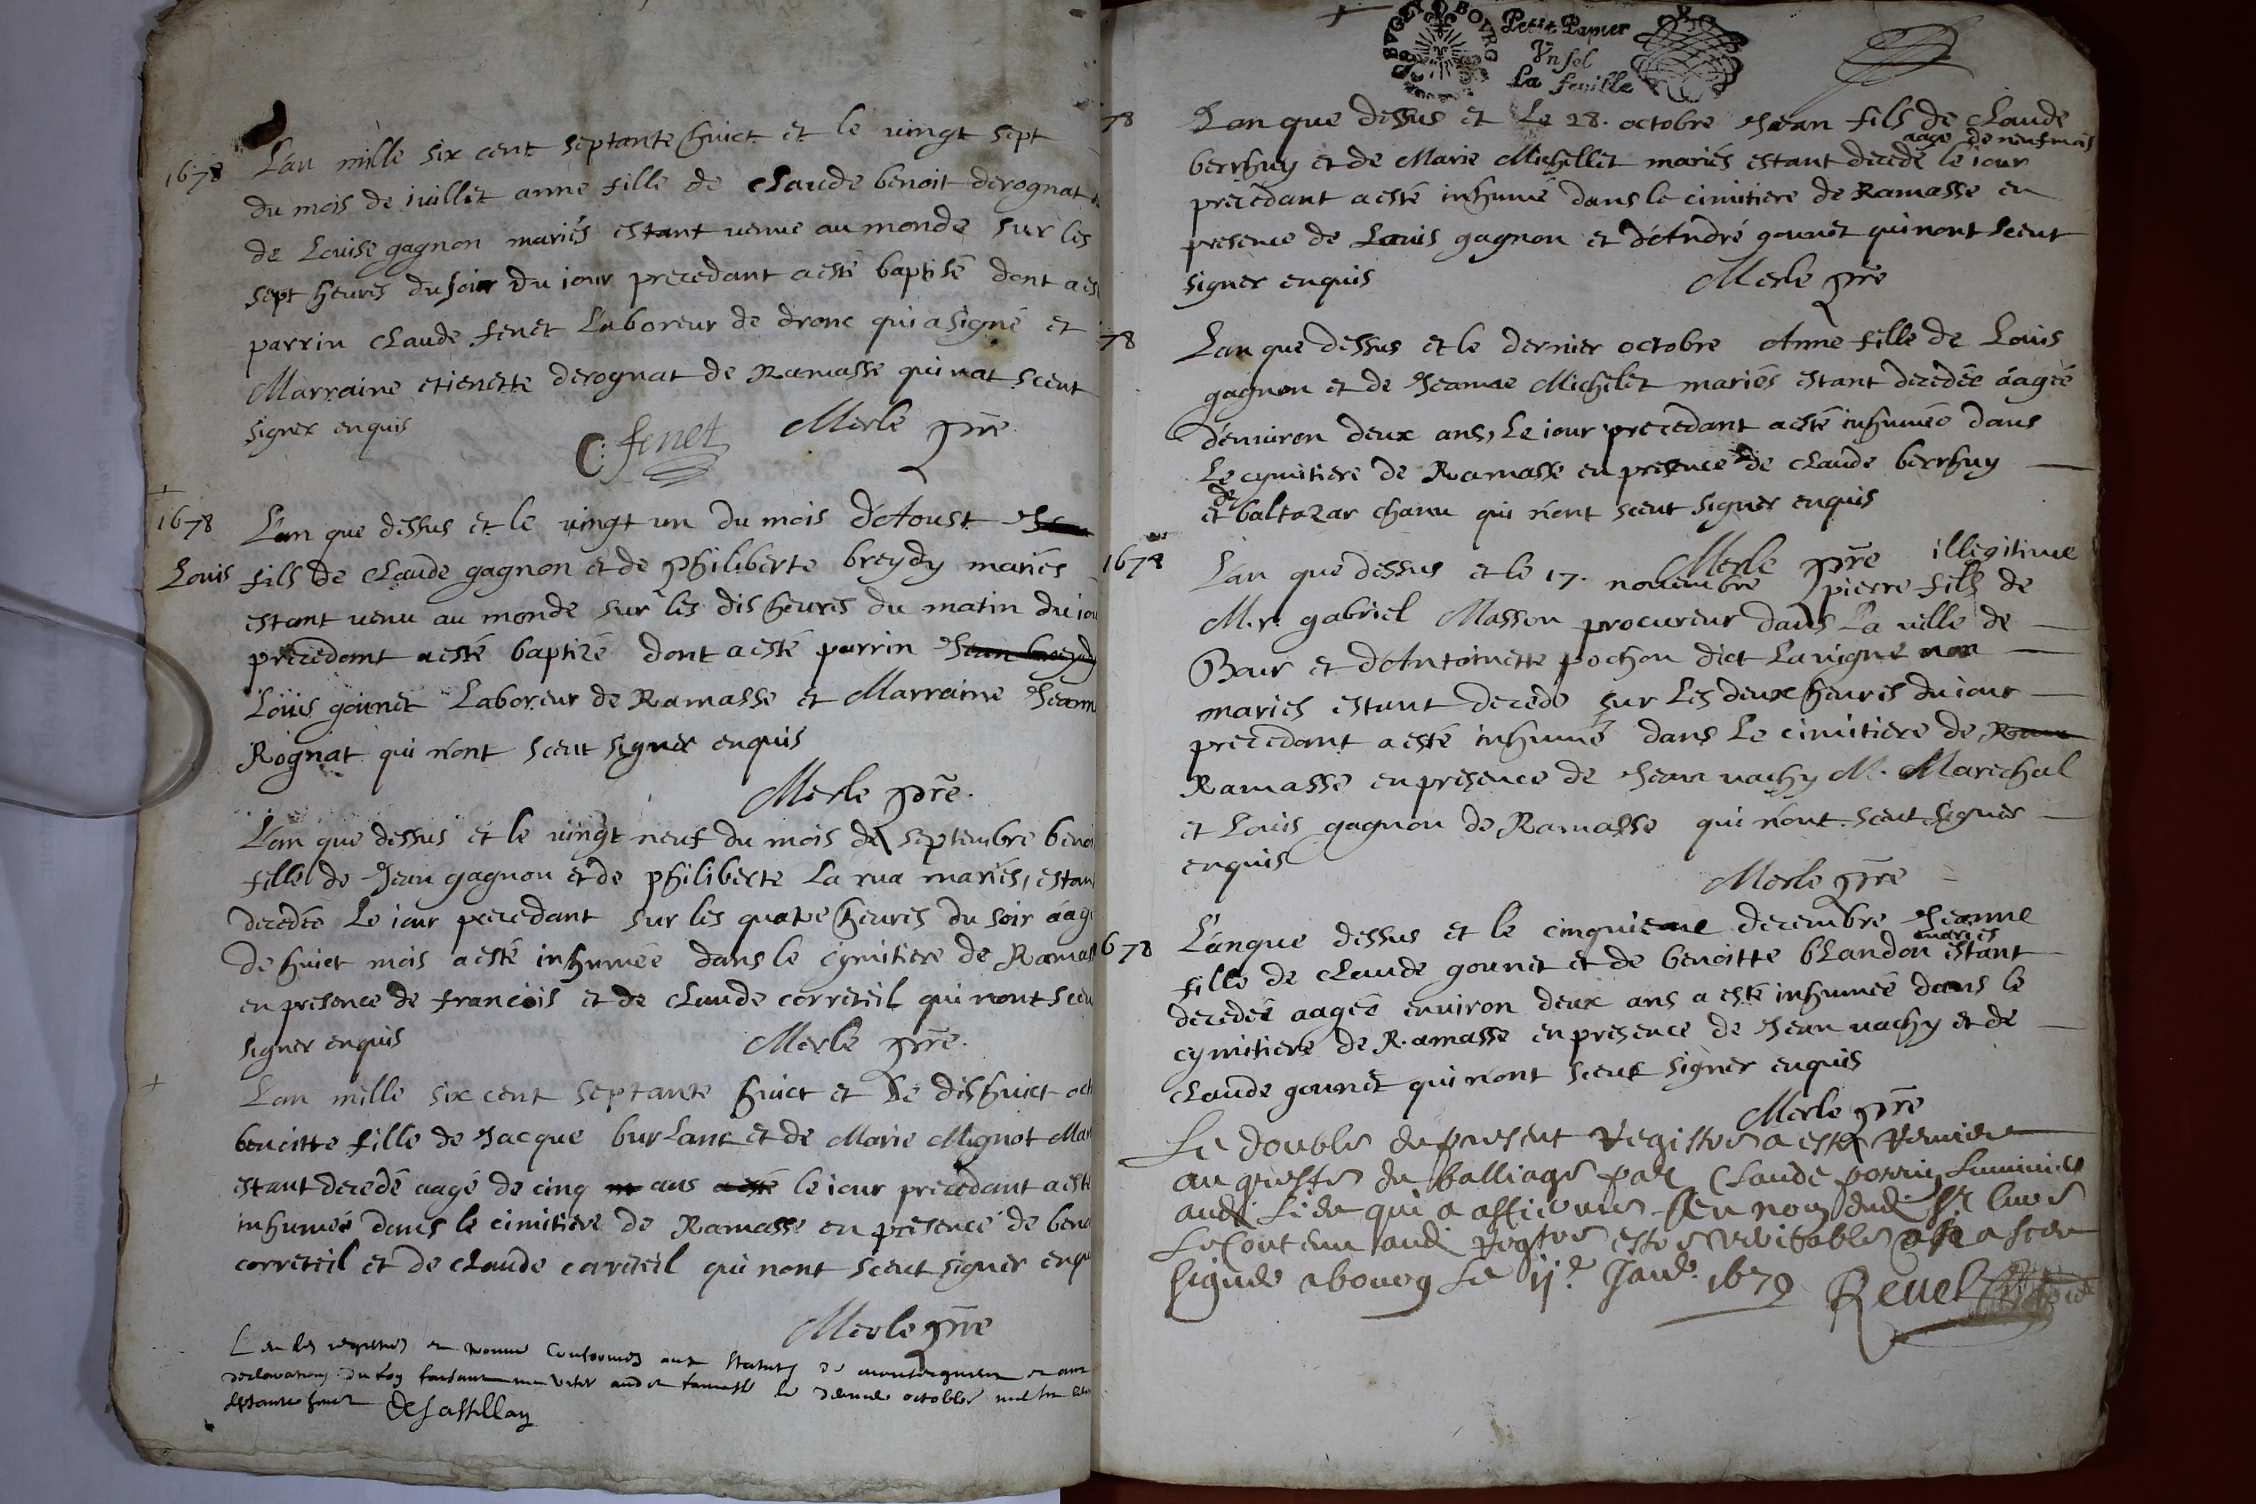 1678
L'an mille six cent septante huict et le vingt sept
du mois de iuillet anne fille de claude benoit derognat
de Louise gagnon mariés estant venue au monde sur les
sept heures du soir du iour precedant a esté baptisé dont a es
parrin claude fenet Laboreur de dronc qui a signé et
Marraine etienette derognat de Ramasse qui nat sceut
signer enquis
C: fenet Merle pre
1678
L'an que dessus et le vingt un du mois d'Aoust
Louis
fils de claude gagnon et de philiberte breydy mariés
estant venu au monde sur les dis heures du matin du iou
precedant a esté baptizé dont a esté parrin Jean breydy
Loüis gounet Laboreur de Ramasse et Marraine Jeann
Rognat qui n'ont sceut signer enquis
Merle pre.
L'an que dessus et le vingt neuf du mois de septembre beno
fille de Jean gagnon et de philiberte La rua mariés, estan
decedée Le iour precedant sur les quatre heures du soir áag
de huict mois a esté inhumée dans le cymitiere de Ramas
en presence de francois et de claude correteil qui n'ont sceu
signer enquis
Merle pre.
L'an mille six cent septante huict et le dishuict oct
benoitte fille de Jacque burlant et de Marie Mignot Mar
estant decedé aagé de cinq ans a esté le iour precedant a esté
inhumée dans le cimitiere de Ramasse en presence de beno
correteil et de claude correteil qui n'ont sceut signer enqu
Merle pre
octobre
Petit Papier
Vn sol
La feuille
BVGEY BOVRG
78
L'an que dessus et Le 28. octobre Jean fils de claude
aage de neuf mois
berrhuy et de Marie Michellet mariés estant decedé le iour
precedant a esté inhumé dans le cimitiere de Ramasse en
presence de Louis gagnon et d'André gounet qui n'ont sceut
signer enquis
Merle pre
78
L'an que dessus et le dernier octobre Anne fille de Louis
gagnon et de Jeanne Michelet mariés estant decedée áagée
d'enuiron deux ans, Le iour precedant a esté inhumée dans
Le cymitiere de Ramasse en presence de claude berrhuy
de
et baltazar chanu qui n'ont sceut signer enquis
Merle pre
1678
illegitime
L'an que dessus et le 17. nouembre pierre fils de
M.r. gabriel Masson procureur dans La ville de
Bour et d'Antoinette pochon dict Lauigne non
mariés estant decedé sur Les deux heures du iour
precedant a esté inhumé dans Le cimitiere de
Ramasse en presence de Jean vachy M. Marechal
et Louis gagnon de Ramasse qui n'ont sceut signer
enquis
Merle pre
678
L'an que dessus et le cinquieme decembre Jeanne
mariés
fille de claude gounet et de benoitte blandon estant
decedée aagée enuiron deux ans a esté inhumée dans le
cymitiere de Ramasse en presence de Jean vachy et de
claude gounet qui n'ont sceut signer enquis
Merle pre
Le double du present Registre a esté remis
au greffe du balliage par Claude
signer a bourg Le 11e Janr. 1679 Reuel